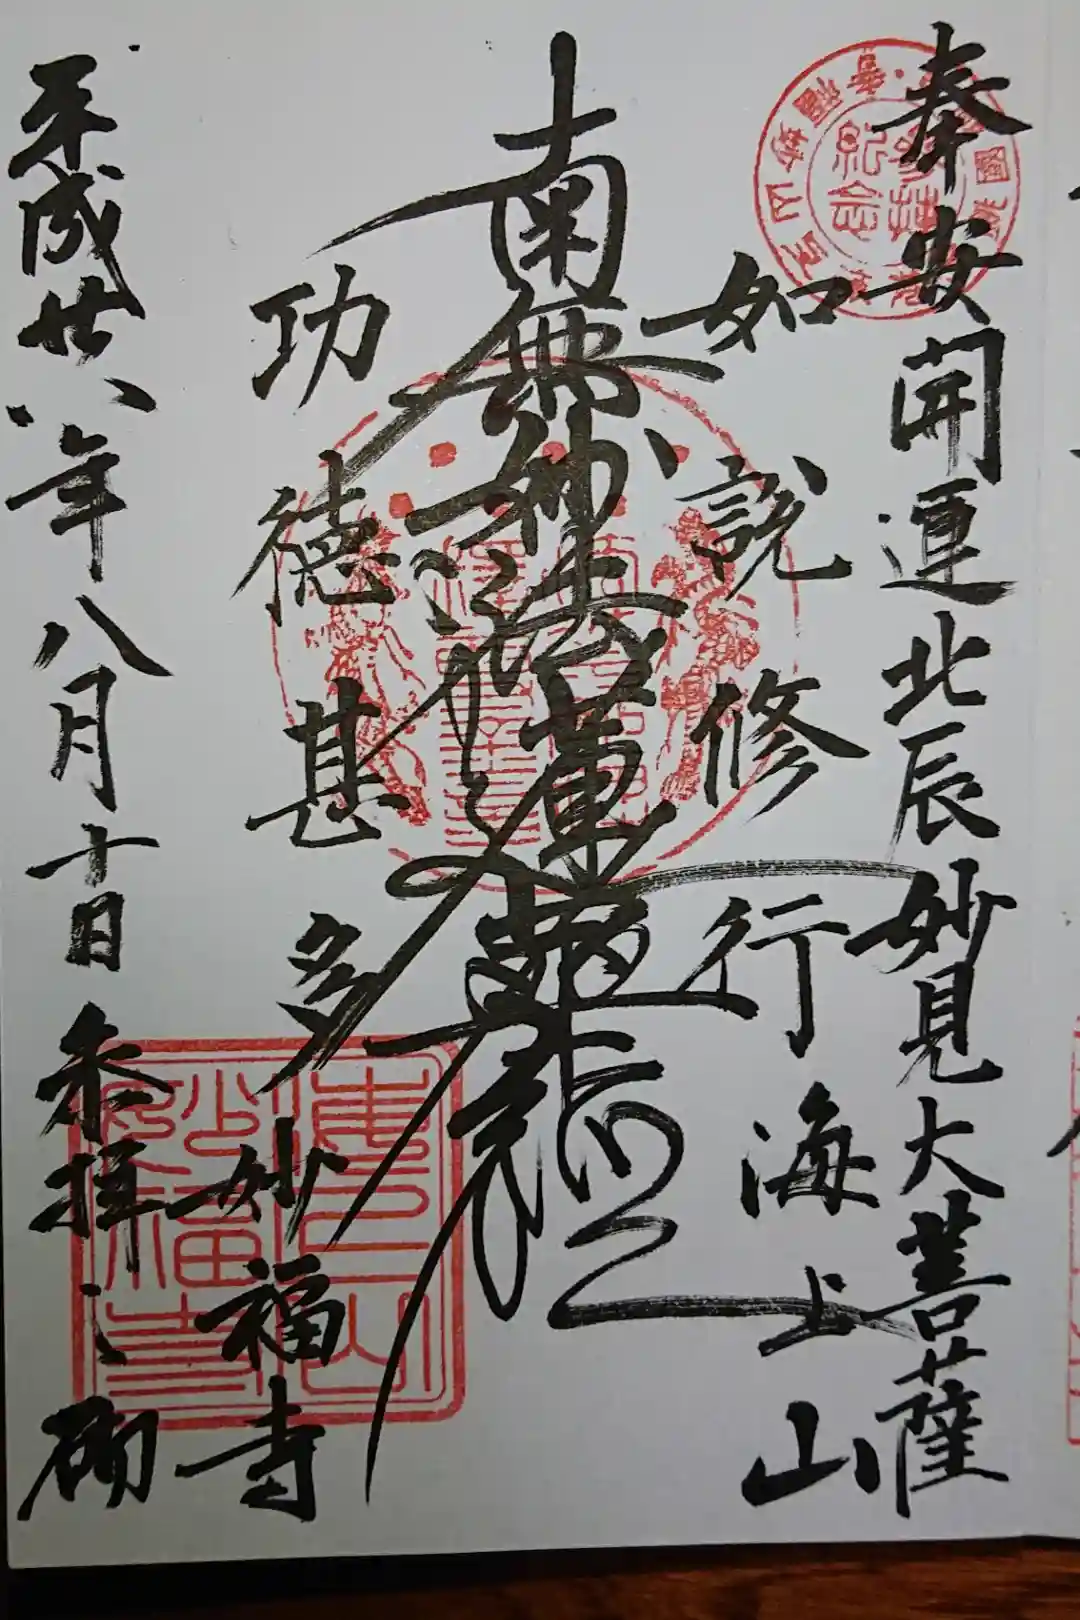 奉安開運北辰妙見大菩薩
如説修行海上山
南無妙法蓮華経
功徳甚多妙福寺
平成廿八年八月十日参拝之砌
紀念